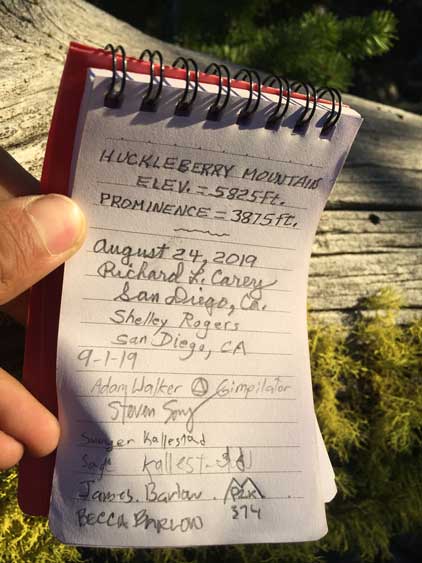 HUCKLEBERRY MOUNTAIN
ELEV. = 5825 ft.
PROMINENCE = 3875 ft.
August 24, 2019
Richard L. Carey
San Diego, Ca.
Shelley Rogers
San Diego, CA
9-1-19
Adam Walker Gimpilator
Steven Song
Kallestad
Sage Kallestad
James Barlow PLK
BECCA BARLOW 374